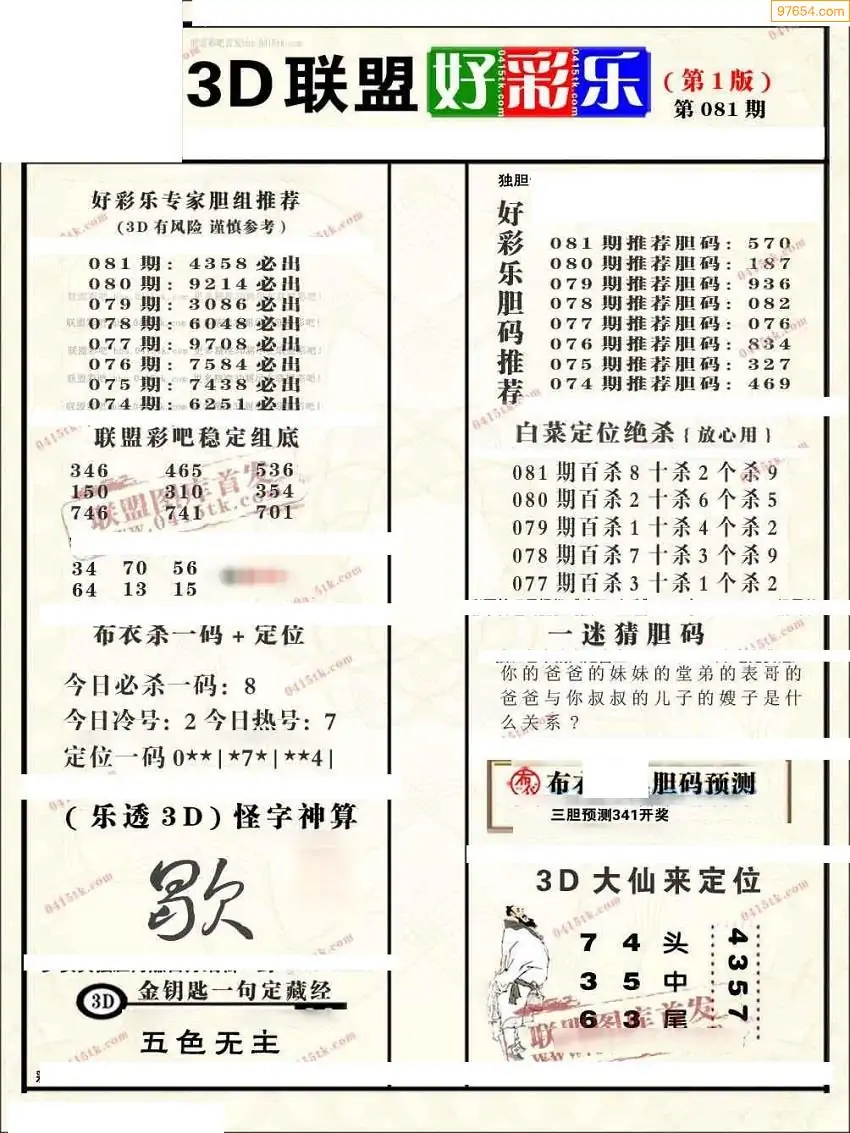 97654.com
3D联盟 好彩乐
(第1版)
第081期
好彩乐专家胆组推荐
(3D有风险 谨慎参考)
081期：4358必出
080期：9214必出
079期：3086必出
078期：6048必出
077期：9708必出
076期：7584必出
075期：7438必出
074期：6251必出
联盟彩吧稳定组底
346 465 536
150 310 354
746 741 701
34 70 56
64 13 15
布衣杀一码+定位
今日必杀一码：8
今日冷号：2 今日热号：7
定位一码0**|*7*|**4|
(乐透3D)怪字神算
歇
3D 金钥匙一句定藏经
五色无主
独胆
好彩乐胆码推荐
081期推荐胆码：570
080期推荐胆码：187
079期推荐胆码：936
078期推荐胆码：082
077期推荐胆码：076
076期推荐胆码：834
075期推荐胆码：327
074期推荐胆码：469
白菜定位绝杀{放心用}
081期百杀8十杀2个杀9
080期百杀2十杀6个杀5
079期百杀1十杀4个杀2
078期百杀7十杀3个杀9
077期百杀3十杀1个杀2
一迷猜胆码
你的爸爸的妹妹的堂弟的表哥的
爸爸与你叔叔的儿子的嫂子是什
么关系？
布衣 胆码预测
三胆预测341开奖
3D大仙来定位
7 4 头
3 5 中
6 3 尾
4357
联盟图库首发
www.0415tk.com
0415tk.com